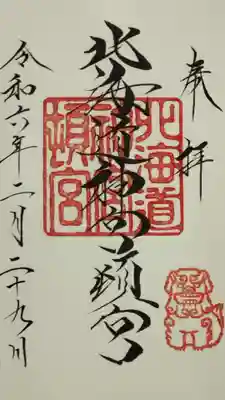 奉拝
北海道神宮頓宮
北海道
神宮
頓宮
令和六年二月二十九日